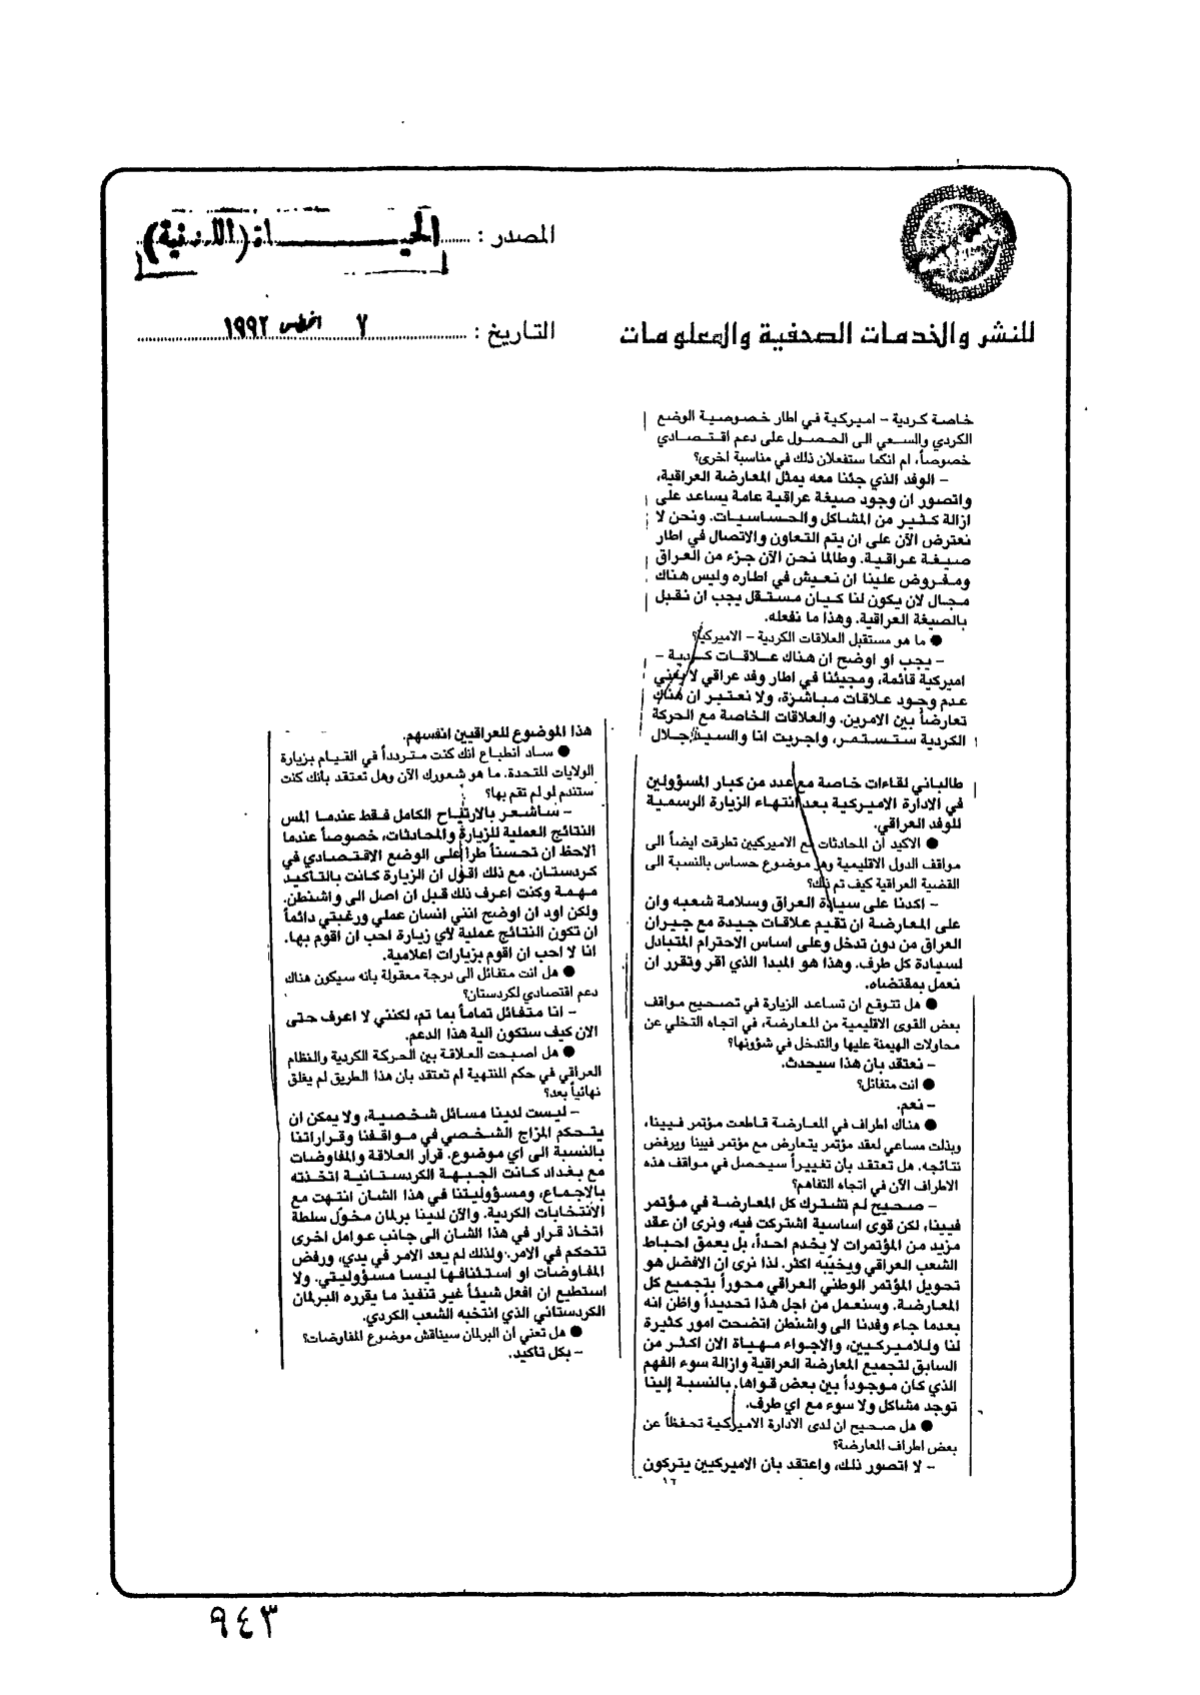 المصدر : الحيـــــــاة (اللندنية)
للنشر والخدمات الصحفية والمعلومات
التاريخ : ٧ اغسطس ١٩٩٢
خاصة كردية - اميركية في اطار خصوصية الوضع
الكردي والسعي الى الحصول على دعم اقتصادي
خصوصاً، ام انكما ستفعلان ذلك في مناسبة اخرى؟
- الوفد الذي جئنا معه يمثل المعارضة العراقية،
واتصور ان وجود صيغة عراقية عامة يساعد على
ازالة كثير من المشاكل والحساسيات. ونحن لا
نعترض الآن على ان يتم التعاون والاتصال في اطار
صيغة عراقية. وطالما نحن الآن جزء من العراق
ومفروض علينا ان نعيش في اطاره وليس هناك
مجال لان يكون لنا كيان مستقل يجب ان نقبل
بالصيغة العراقية. وهذا ما نفعله.
● ما هو مستقبل العلاقات الكردية - الاميركية؟
- يجب او اوضح ان هناك علاقات كردية -
اميركية قائمة، ومجيئنا في اطار وفد عراقي لا يعني
عدم وجود علاقات مباشرة، ولا نعتبر ان هناك
تعارضاً بين الامرين. والعلاقات الخاصة مع الحركة
الكردية ستستمر، واجريت انا والسيد جلال
طالباني لقاءات خاصة مع عدد من كبار المسؤولين
في الادارة الاميركية بعد انتهاء الزيارة الرسمية
للوفد العراقي.
● الاكيد ان المحادثات مع الاميركيين تطرقت ايضاً الى
مواقف الدول الاقليمية وهو موضوع حساس بالنسبة الى
القضية العراقية كيف تم ذلك؟
- اكدنا على سيادة العراق وسلامة شعبه وان
على المعارضة ان تقيم علاقات جيدة مع جيران
العراق من دون تدخل وعلى اساس الاحترام المتبادل
لسيادة كل طرف. وهذا هو المبدا الذي اقر وتقرر ان
نعمل بمقتضاه.
● هل تتوقع ان تساعد الزيارة في تصحيح مواقف
بعض القوى الاقليمية من المعارضة، في اتجاه التخلي عن
محاولات الهيمنة عليها والتدخل في شؤونها؟
- نعتقد بان هذا سيحدث.
● انت متفائل؟
- نعم.
● هناك اطراف في المعارضة قاطعت مؤتمر فيينا،
وبذلت مساعي لعقد مؤتمر يتعارض مع مؤتمر فيينا ويرفض
نتائجه. هل تعتقد بان تغييراً سيحصل في مواقف هذه
الاطراف الآن في اتجاه التفاهم؟
- صحيح لم تشترك كل المعارضة في مؤتمر
فيينا، لكن قوى اساسية اشتركت فيه، ونرى ان عقد
مزيد من المؤتمرات لا يخدم احداً، بل يعمق احباط
الشعب العراقي ويخيّبه اكثر. لذا نرى ان الافضل هو
تحويل المؤتمر الوطني العراقي محوراً بتجميع كل
المعارضة. وسنعمل من اجل هذا تحديداً واظن انه
بعدما جاء وفدنا الى واشنطن اتضحت امور كثيرة
لنا وللاميركيين، والاجواء مهيأة الآن اكثر من
السابق لتجميع المعارضة العراقية وازالة سوء الفهم
الذي كان موجوداً بين بعض قواها. بالنسبة إلينا
توجد مشاكل ولا سوء مع اي طرف.
● هل صحيح ان لدى الادارة الاميركية تحفظاً عن
بعض اطراف المعارضة؟
- لا اتصور ذلك، واعتقد بان الاميركيين يتركون
هذا الموضوع للعراقيين انفسهم.
● ساد انطباع انك كنت متردداً في القيام بزيارة
الولايات المتحدة. ما هو شعورك الآن وهل تعتقد بانك كنت
ستندم لو لم تقم بها؟
- ساشعر بالارتياح الكامل فقط عندما المس
النتائج العملية للزيارة والمحادثات، خصوصاً عندما
الاحظ ان تحسناً طرا على الوضع الاقتصادي في
كردستان. مع ذلك اقول ان الزيارة كانت بالتاكيد
مهمة وكنت اعرف ذلك قبل ان اصل الى واشنطن.
ولكن اود ان اوضح انني انسان عملي ورغبتي دائماً
ان تكون النتائج عملية لاي زيارة احب ان اقوم بها.
انا لا احب ان اقوم بزيارات اعلامية.
● هل انت متفائل الى درجة معقولة بانه سيكون هناك
دعم اقتصادي لكردستان؟
- انا متفائل تماماً بما تم، لكنني لا اعرف حتى
الآن كيف ستكون آلية هذا الدعم.
● هل اصبحت العلاقة بين الحركة الكردية والنظام
العراقي في حكم المنتهية ام تعتقد بان هذا الطريق لم يغلق
نهائياً بعد؟
- ليست لدينا مسائل شخصية، ولا يمكن ان
يتحكم المزاج الشخصي في مواقفنا وقراراتنا
بالنسبة الى اي موضوع. قرار العلاقة والمفاوضات
مع بغداد كانت الجبهة الكردستانية اتخذته
بالإجماع، ومسؤوليتنا في هذا الشان انتهت مع
الانتخابات الكردية. والآن لدينا برلمان مخوّل سلطة
اتخاذ قرار في هذا الشان الى جانب عوامل اخرى
تتحكم في الامر. ولذلك لم يعد الامر في يدي، ورفض
المفاوضات او استئنافها ليسا مسؤوليتي. ولا
استطيع ان افعل شيئاً غير تنفيذ ما يقرره البرلمان
الكردستاني الذي انتخبه الشعب الكردي.
● هل تعني ان البرلمان سيناقش موضوع المفاوضات؟
- بكل تاكيد.
١٦
٩٤٣